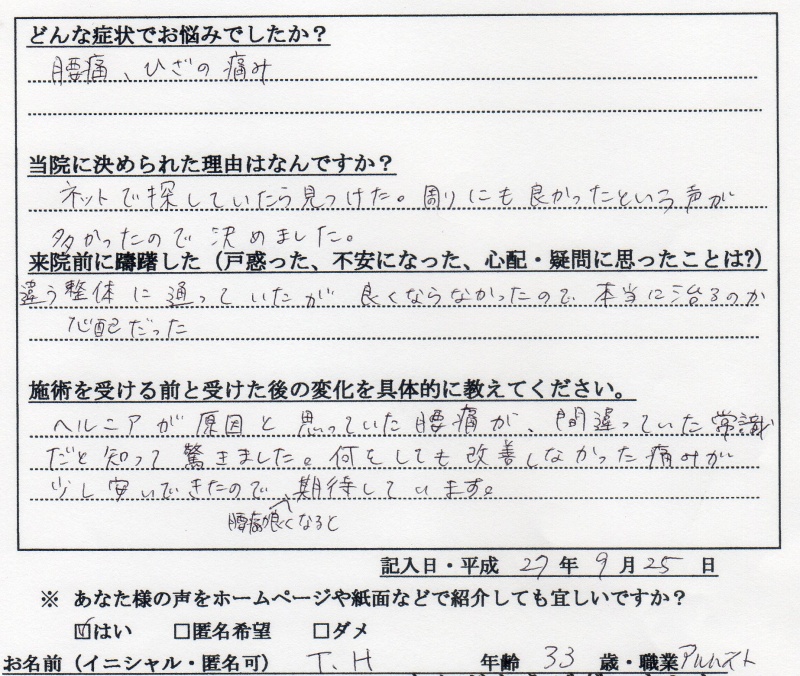 どんな症状でお悩みでしたか？
腰痛、ひざの痛み
当院に決められた理由はなんですか？
ネットで探していたら見つけた。周りにも良かったという声が
多かったので決めました。
来院前に躊躇した（戸惑った、不安になった、心配・疑問に思ったことは?）
違う整体に通っていたが良くならなかったので本当に治るのか
心配だった
施術を受ける前と受けた後の変化を具体的に教えてください。
ヘルニアが原因と思っていた腰痛が、間違っていた常識
だと知って驚きました。何をしても改善しなかった痛みが
少し安いできたので期待しています。
腰痛が良くなると
記入日・平成 27 年 9 月 25 日
※ あなた様の声をホームページや紙面などで紹介しても宜しいですか？
☑はい □匿名希望 □ダメ
お名前（イニシャル・匿名可） T.H 年齢 33 歳・職業 アルバイト